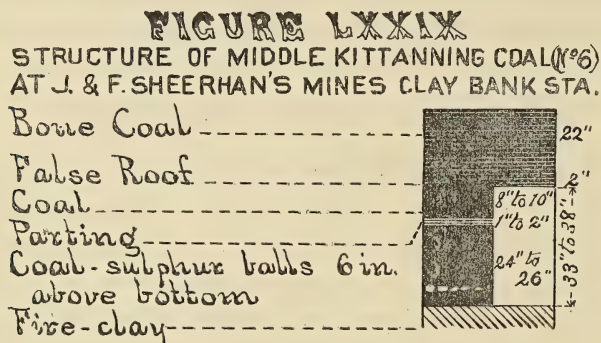 FIGURE LXXIX
STRUCTURE OF MIDDLE KITTANNING COAL (No 6)
AT J. & F. SHEERHAN'S MINES CLAY BANK STA.
Bone Coal 22"
False Roof 2"
Coal 8" to 10"
Parting 1" to 2"
Coal-sulphur balls 6 in. 24" to
above bottom 26"
Fire-clay
33" to 38"